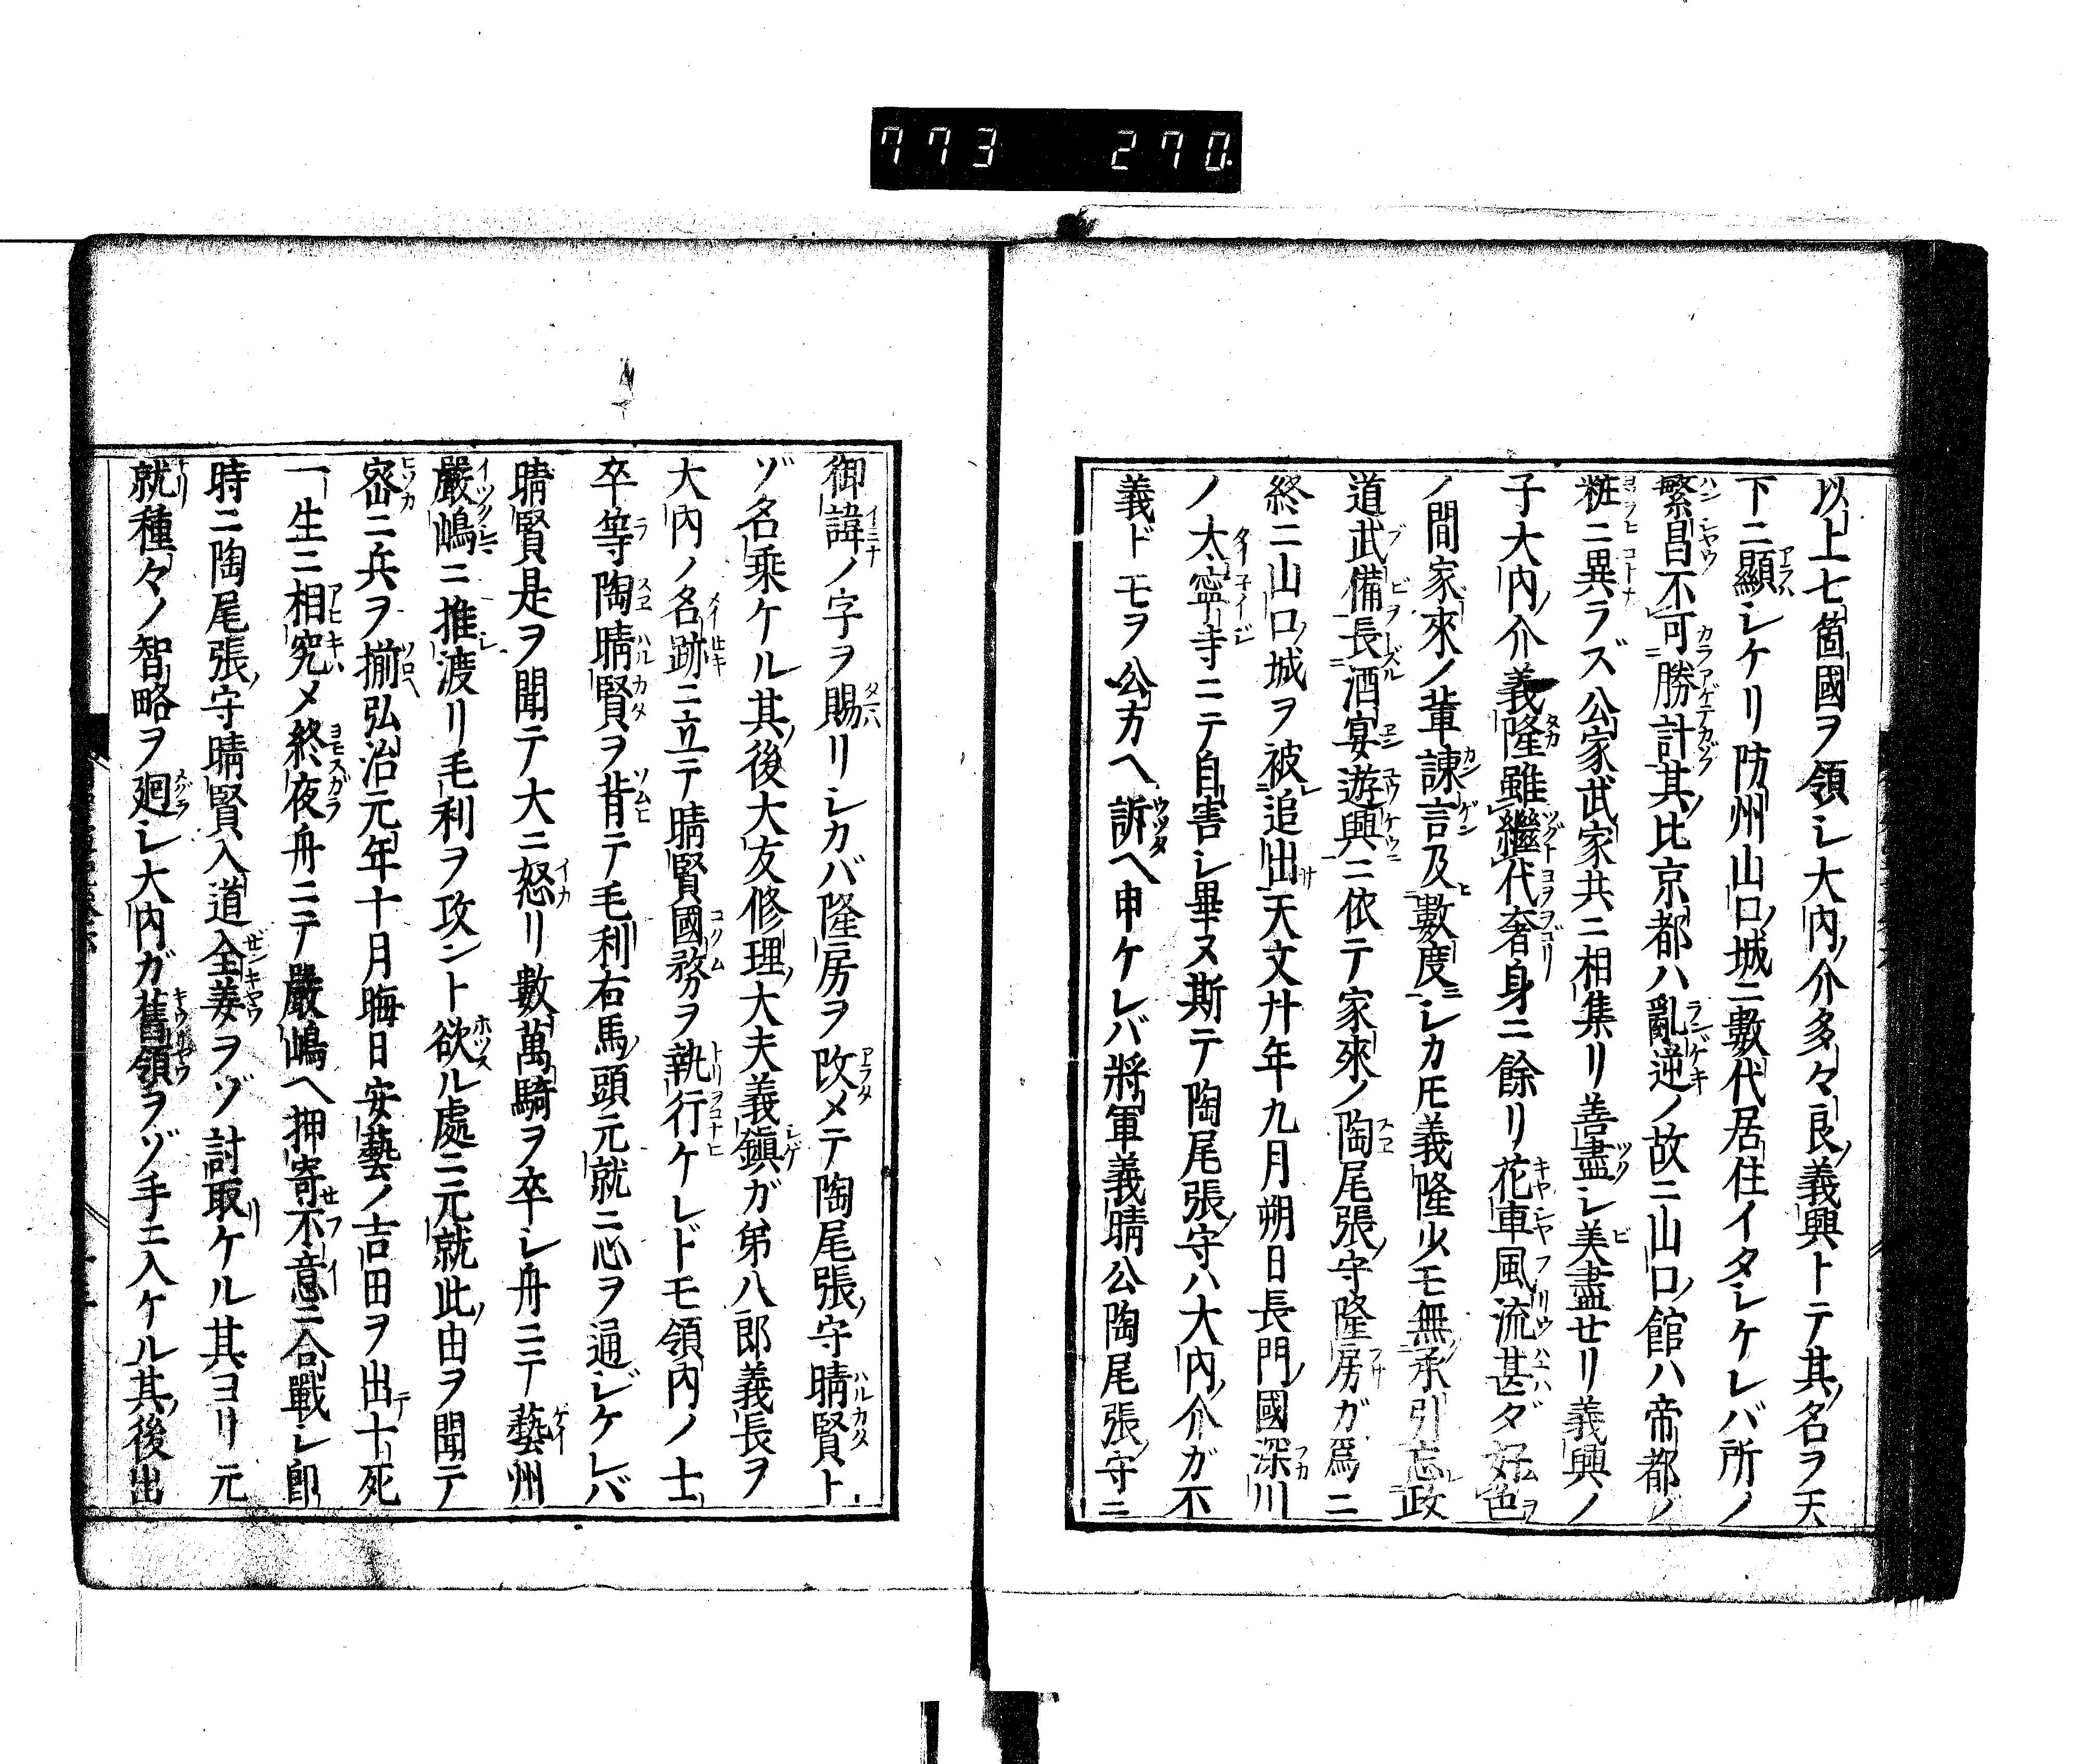 773 270
以上七箇國ヲ領シ大内ノ介多々良ノ義興トテ其ノ名ヲ天
下ニ顯シケリ防州山口ノ城ニ數代居住イタシケレバ所ノ
繁昌不可勝計其ノ比京都ハ亂逆ノ故ニ山口ノ館ハ帝都ノ
粧ニ異ラズ公家武家共ニ相集リ善盡シ美盡セリ義興ノ
子大内ノ介義隆雖繼代奢身ニ餘リ花車風流甚ダ好色
ノ間家來ノ輩諫言及數度シカ𪜈義隆少モ無承引忘政
道武備長酒宴遊興ニ依テ家來ノ陶尾張ノ守隆房ガ爲ニ
終ニ山口ノ城ヲ被追出天文廿年九月朔日長門ノ國深川
ノ大寧寺ニテ自害シ畢ヌ斯テ陶尾張ノ守ハ大内ノ介ガ不
義ドモヲ公方ヘ訴ヘ申ケレバ將軍義晴公陶尾張ノ守ニ
御諱ノ字ヲ賜リシカバ隆房ヲ改メテ陶尾張ノ守晴賢ト
ゾ名乘ケル其ノ後大友修理ノ大夫義鎭ガ弟八郎義長ヲ
大内ノ名跡ニ立テ晴賢國務ヲ執行ケレドモ領内ノ士
卒等陶晴賢ヲ背テ毛利右馬ノ頭元就ニ心ヲ通ジケレバ
晴賢是ヲ聞テ大ニ怒リ數萬騎ヲ卒シ舟ニテ藝州
嚴嶋ニ推渡リ毛利ヲ攻ント欲ル處ニ元就此ノ由ヲ聞テ
密ニ兵ヲ揃弘治元年十月晦日安藝ノ吉田ヲ出十死
一生ニ相究メ終夜舟ニテ嚴嶋ヘ押寄不意ニ合戰シ卽
時ニ陶尾張ノ守晴賢入道全姜ヲゾ討取ケル其ヨリ元
就種々ノ智略ヲ廻シ大内ガ舊領ヲゾ手ニ入ケル其ノ後出